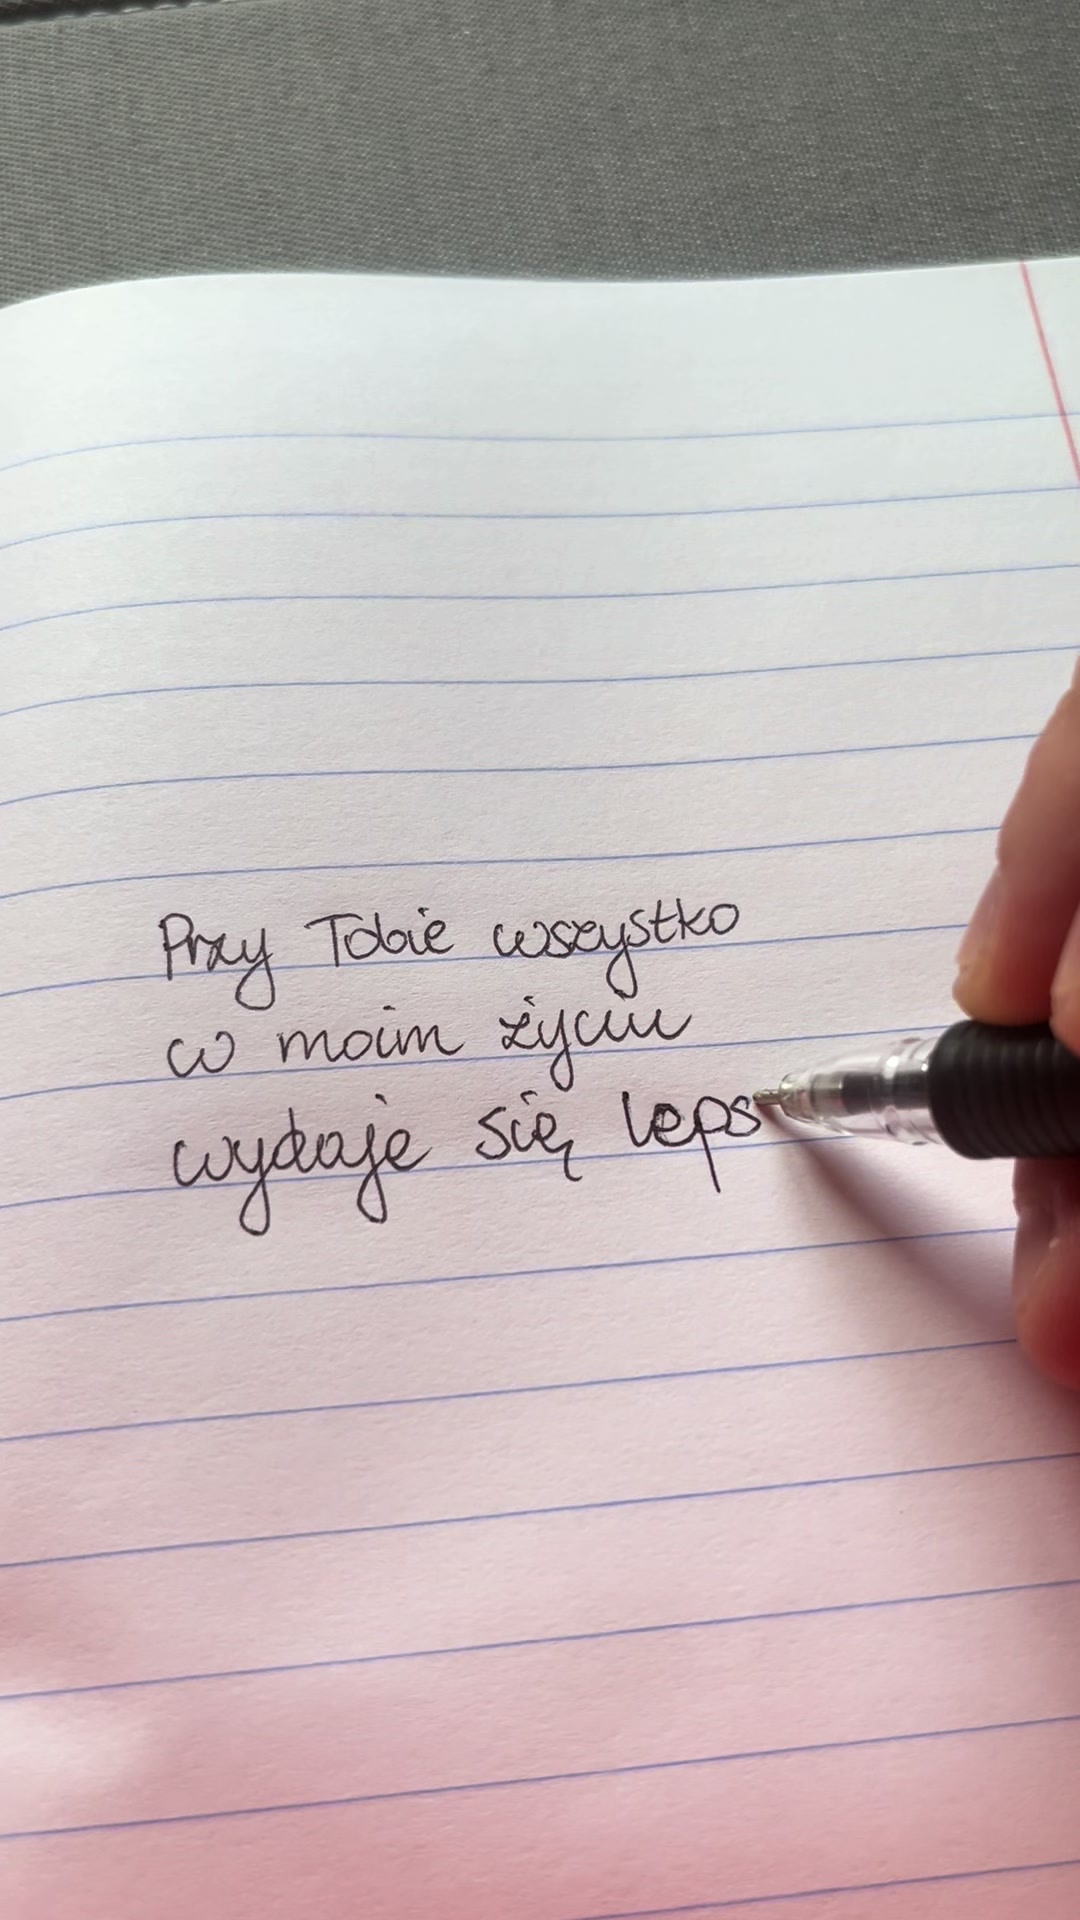 Przy Tobie wszystko
w moim życiu
wydaje się leps